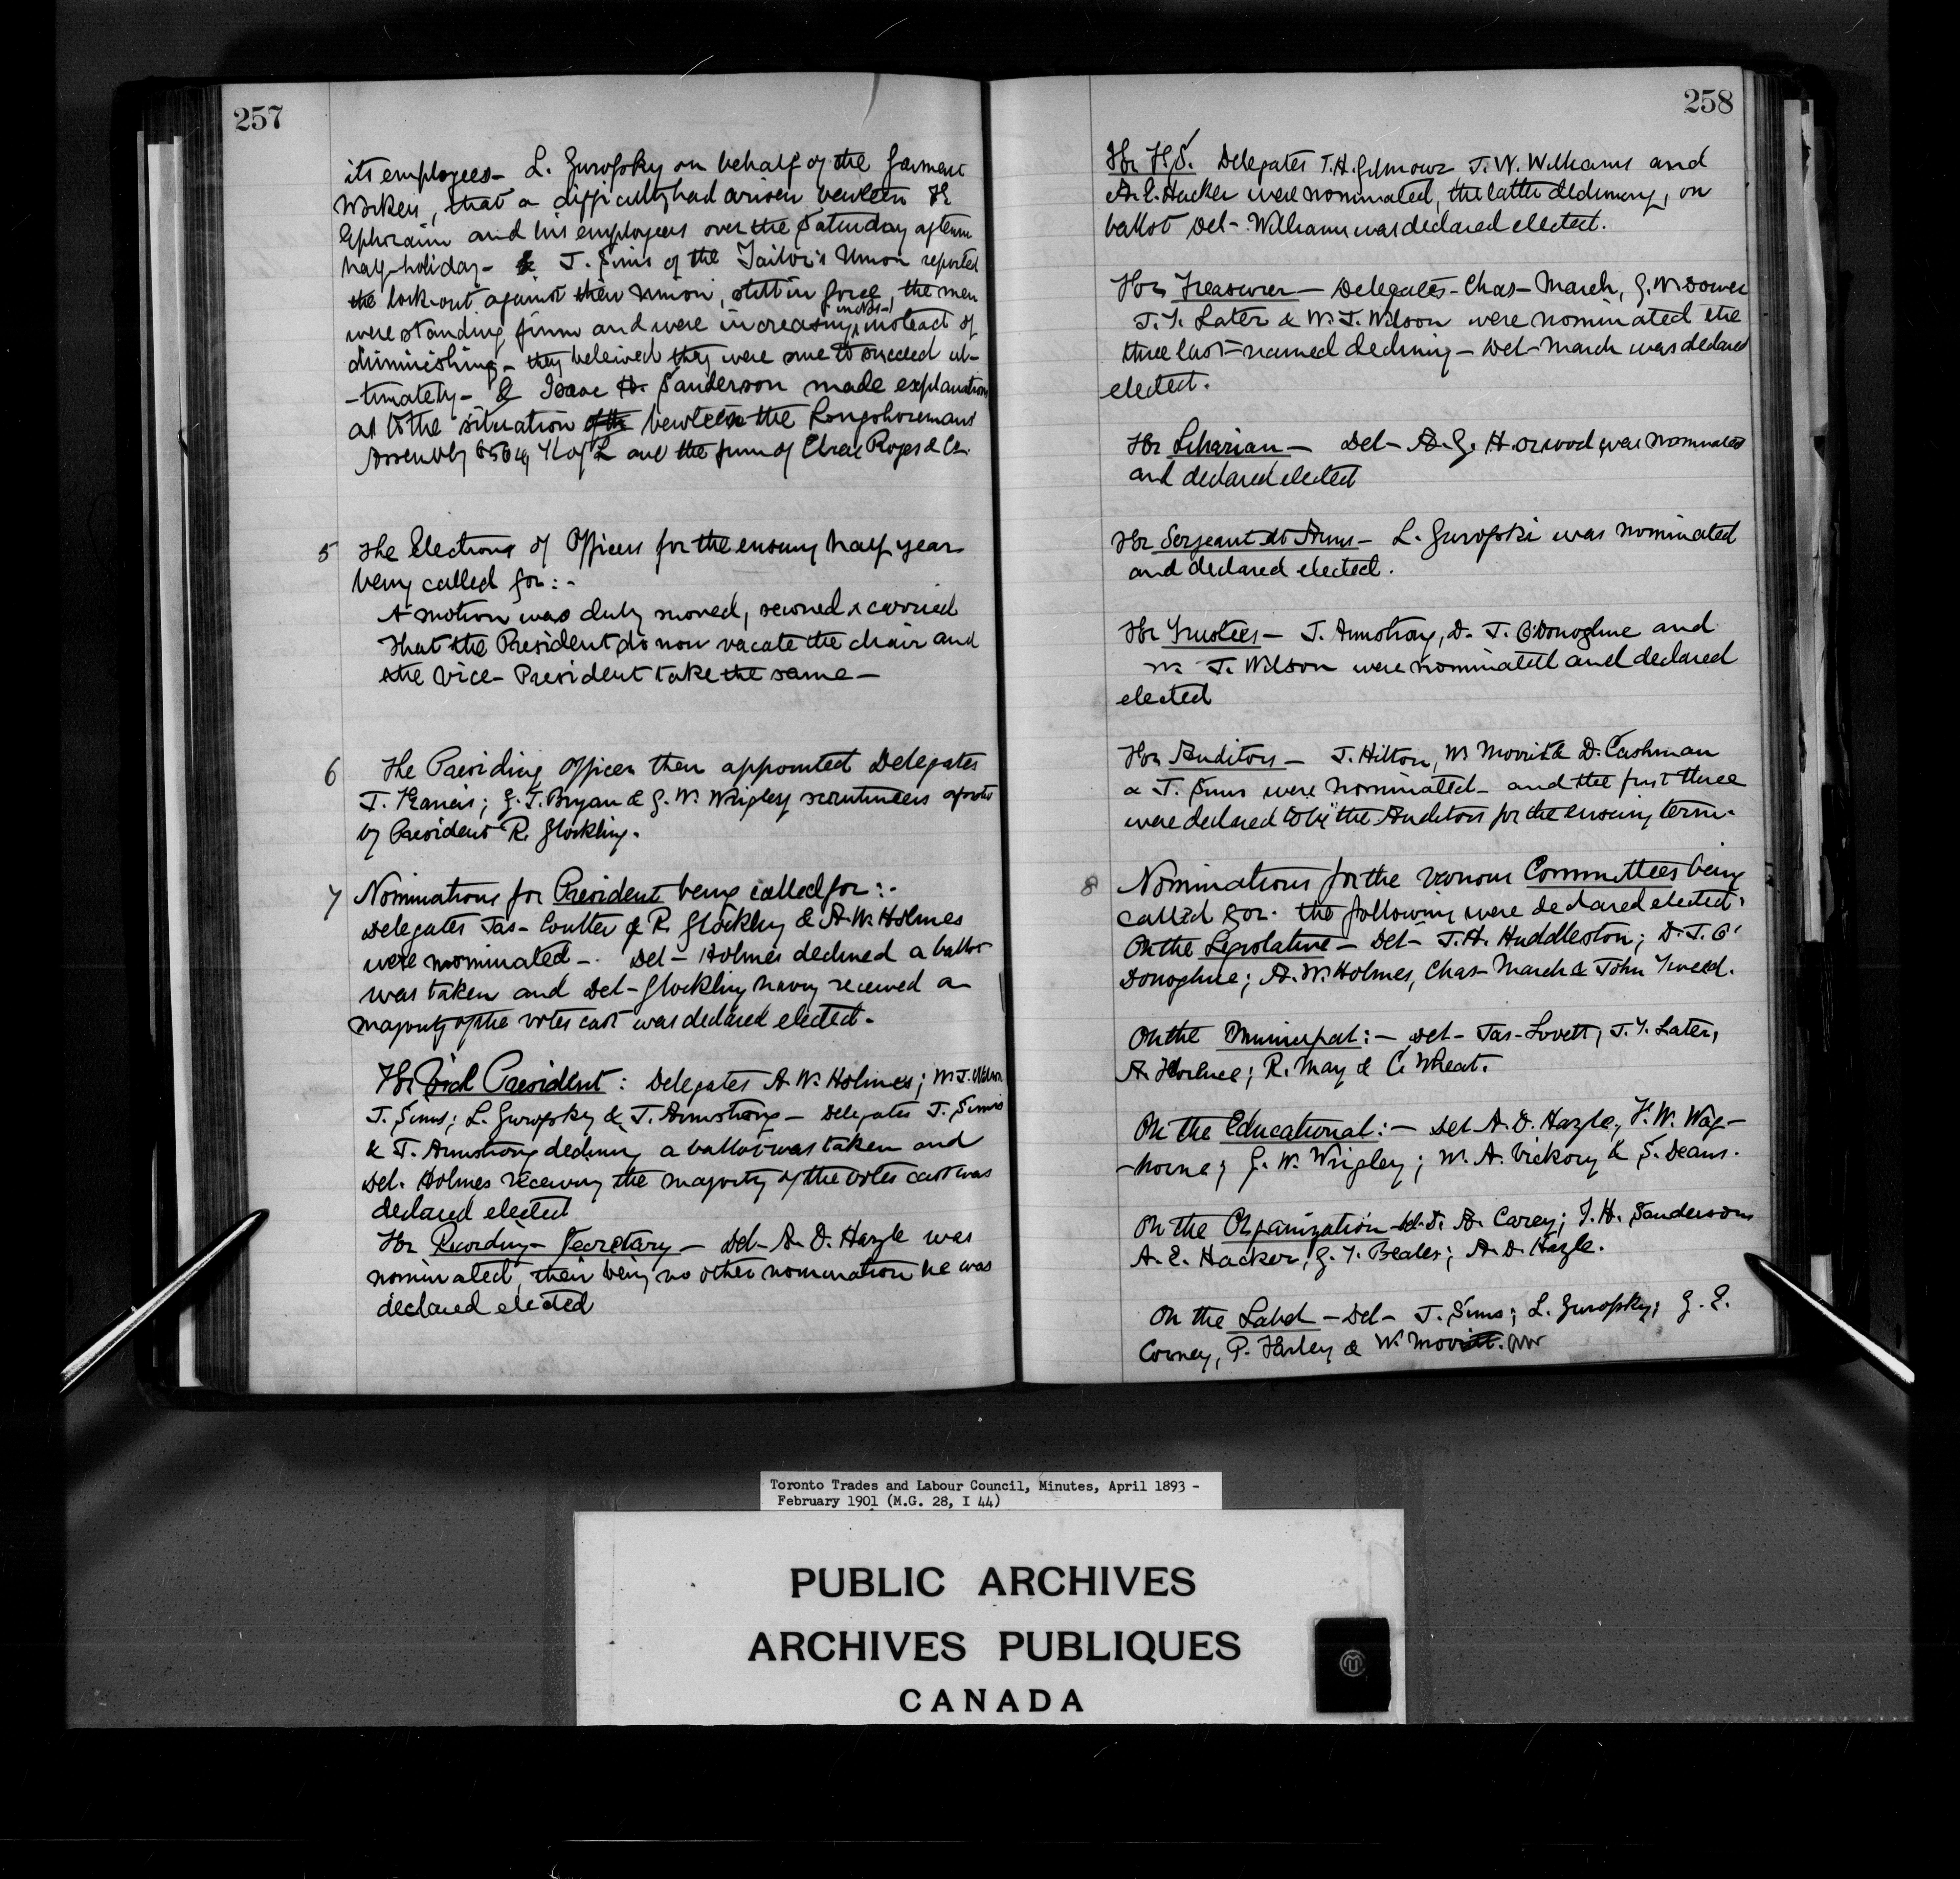 257
its employees - L. Gurofsky on behalf of the Garment
Workers, that a difficulty had arisen between
Ephraim and his employees over the Saturday aftern
half-holiday - & J. Sims of the Tailor's Union reported
the lock-out against their union, still in force, the men
in Nos-
were standing firm and were increasing, instead of
diminishing - they beleived they were sure to succeed ul-
-timately - & Isaac H. Sanderson made explanation
as to the situation of the between the Longshoremans
Assembly K of L and the firm of Elias Rogers & Co.
5 The Elections of Officers for the ensuing half year
being called for: -
A motion was duly moved, seconed & carried
That the President do now vacate the chair and
the Vice - President take the same -
6 The Presiding Officer then appointed Delegates
J. Francis; G. T. Bryan & G. W. Wrigley scrutineers
by President R. Glockling.
7 Nominations for President being called for: -
Delegates Jas - Coulter & R. Glockling & A. W. Holmes
were nominated - . Del - Holmes declined a ballot
was taken and Del - Glockling having received a
majority of the votes cast was declared elected -
For Vice President : Delegates A. W. Holmes; W. J. Wilson
J. Sims; L. Gurofsky & J. Armstrong - Delegates J. Sims
& J. Armstrong declining a ballot was taken and
Del. Holmes receiving the majority of the votes cast was
declared elected
For Recording - Secretary - Del - A. D. Hazle was
nominated, their being no other nomination he was
declared elected
258
For F.S. Delegates T. H. Gilmour J. W. Williams and
A. E. Hacker were nominated, the latter declining, on
ballot Del - Williams was declared elected.
For Treasurer - Delegates - Chas - March, G. W. Dower
J. T. Later & W. J. Wilson were nominated the
three last = named declining - Del - March was declared
elected.
For Librarian - Del - A. G. Horwood was nominated
and declared elected
For Sergeant At Arms - L. Gurofski was nominated
and declared elected.
For Trustees - J. Armstrong, D. J. O'Donoghue and
W. J. Wilson were nominated and declared
elected
For Auditors - J. Hilton, W. Morris & D. Cashman
& J. Sims were nominatted - and the first three
were declared to be the Auditors for the ensuing term.
8 Nominations for the various Committees being
called for - the following were declared elected.
On the Legislative - Del - J. H. Huddleston; D. J. O'
Donoghue; A. W. Holmes, Chas - March & John Tweed.
On the Municipal: - Del - Jas - Lovett, J. T. Later,
A. R. May & C. Wheat.
On the Educational: - Del A. D. Hazle, F. W. Wag-
-horne; G. W. Wrigley; W. A. Vickory & S. Deans.
On the Organization - Del. D. A. Carey; I. H. Sanderson
A. E. Hacker, G. T. Beales; A. D. Hazle.
On the Label - Del - J. Sims; L. Gurofsky; G. E.
Corney, P. Harley & W.
Toronto Trades and Labour Council, Minutes, April 1893 -
February 1901 (M.G. 28, I 44)
PUBLIC ARCHIVES
ARCHIVES PUBLIQUES
CANADA